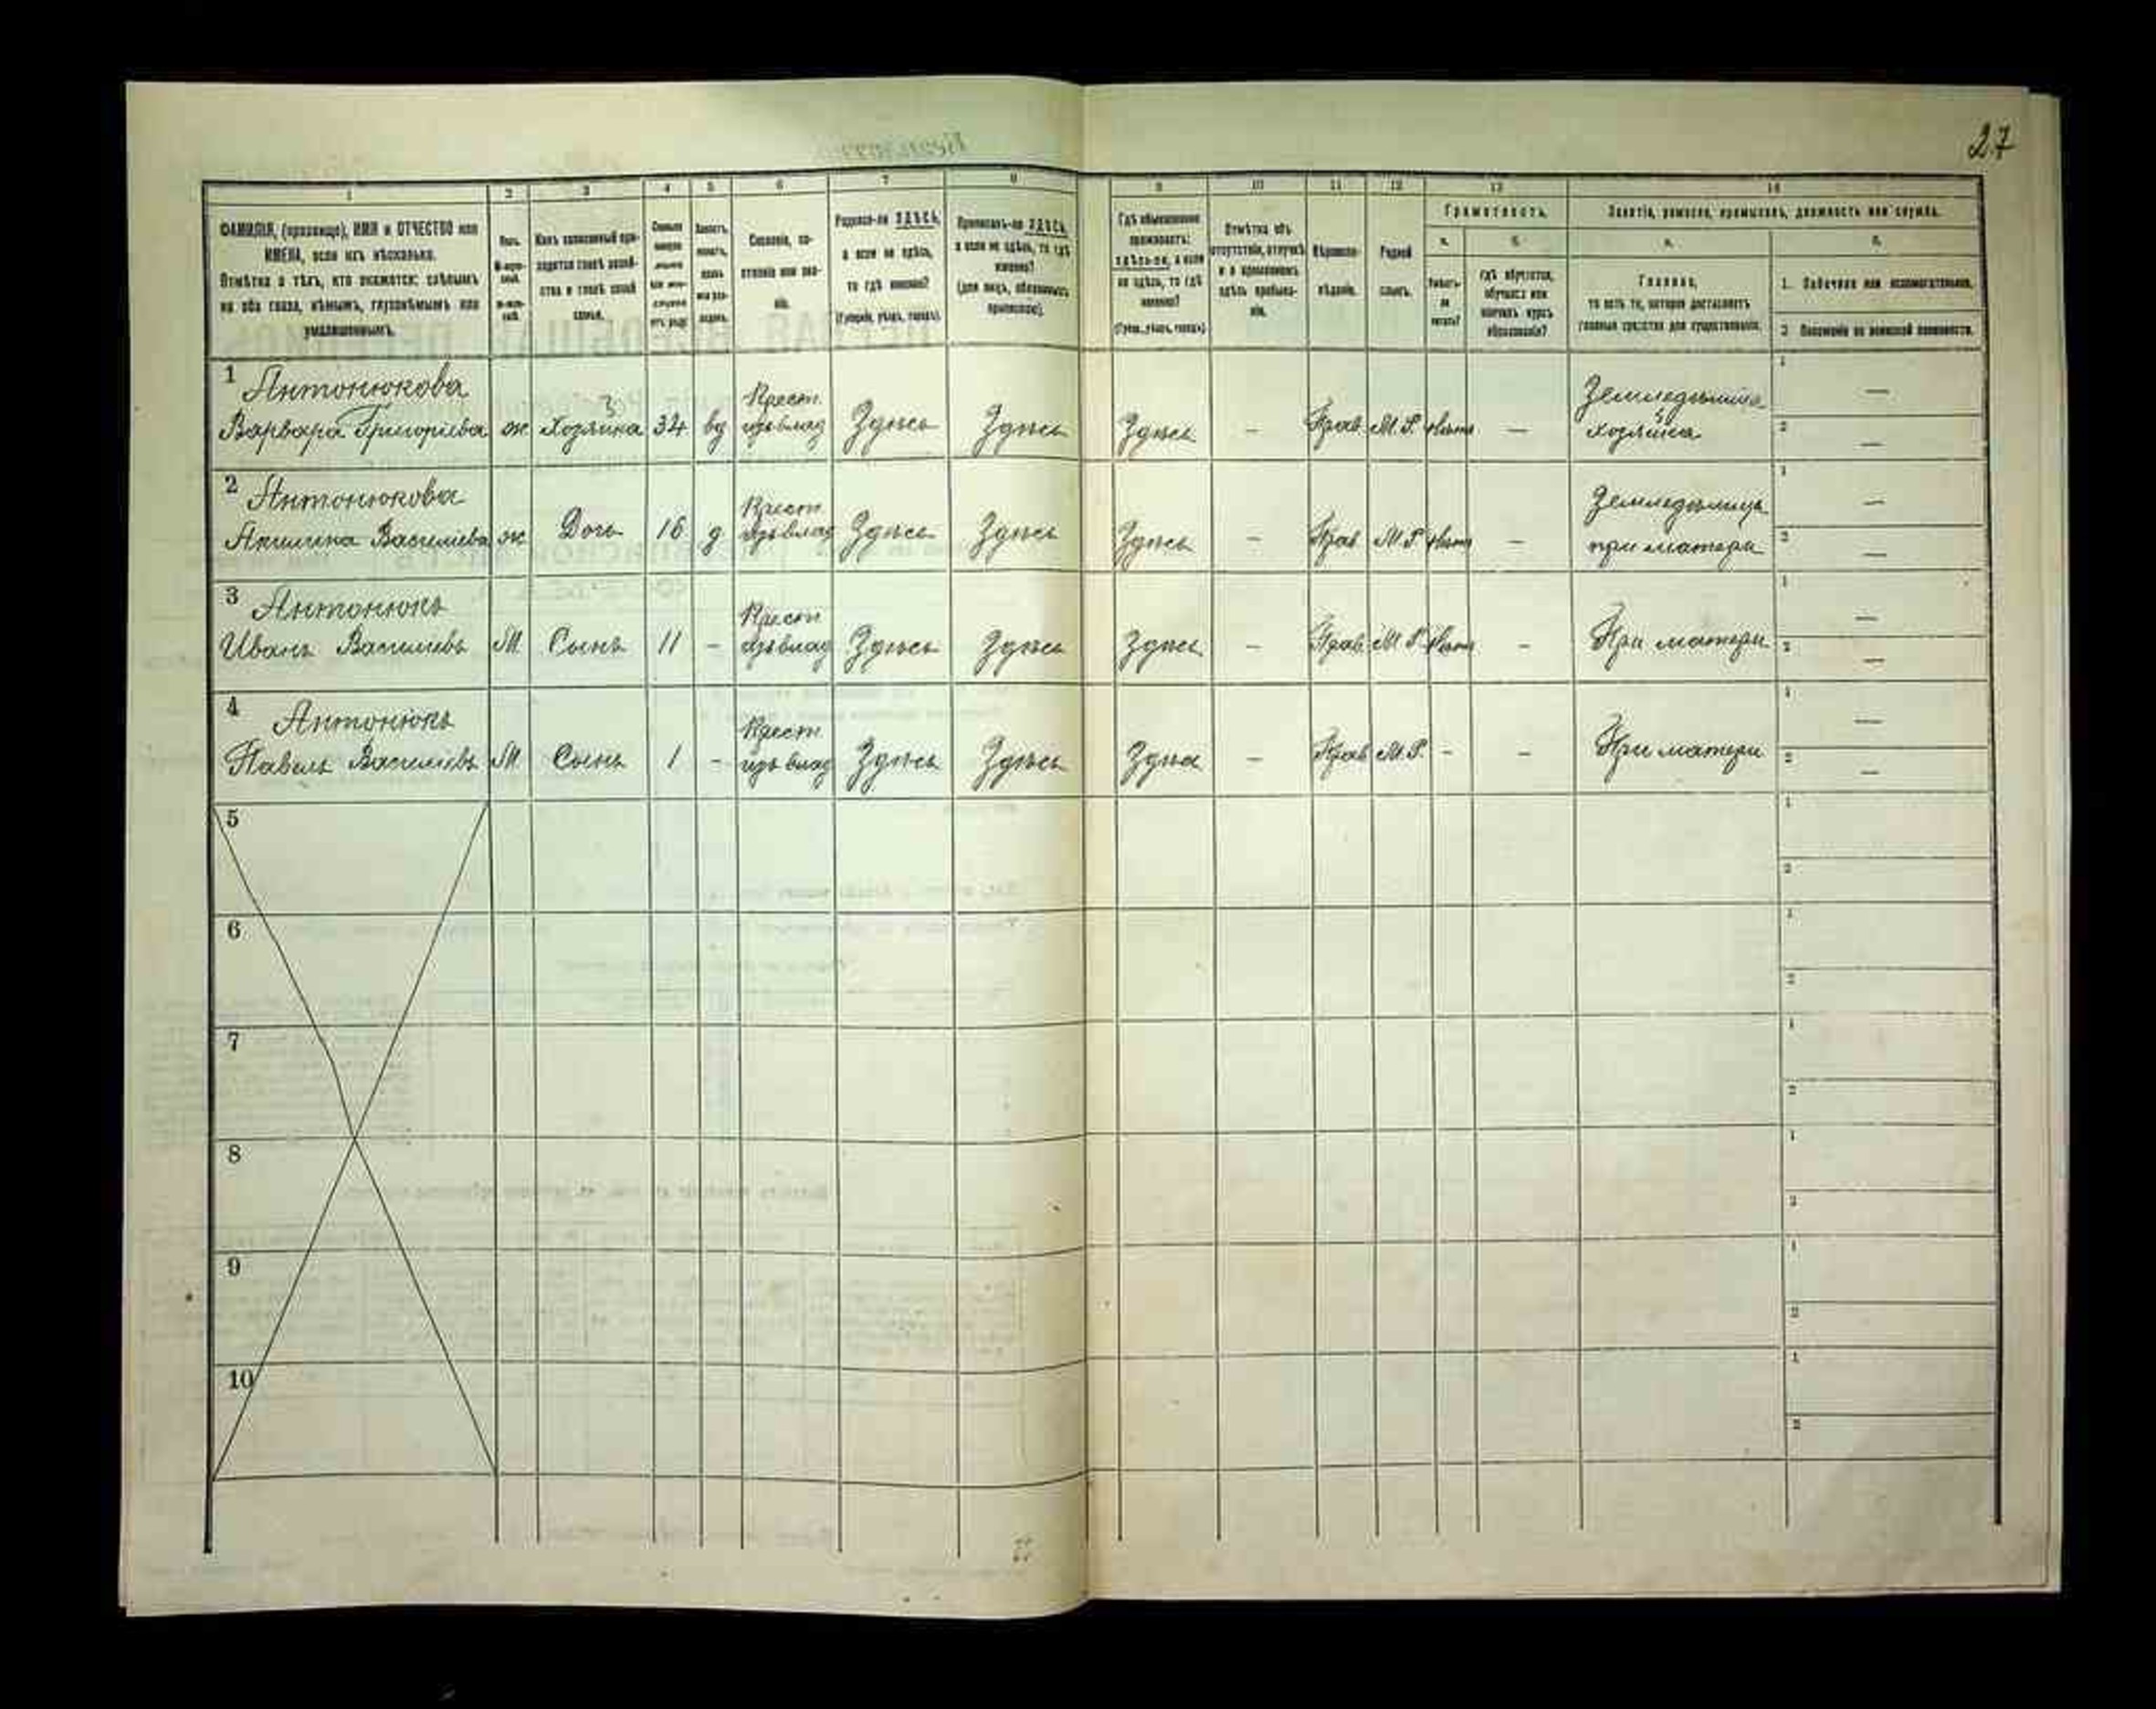 27
1 2 3 4 5 6 7 8 9 10 11 12 13 14
ФАМИЛІЯ, (прозвище), ИМЯ и ОТЧЕСТВО или
ИМЕНА, если ихъ нѣсколько.
Отмѣтка о тѣхъ, кто окажется: слѣпымъ
на оба глаза, нѣмымъ, глухонѣмымъ или
умалишеннымъ.
Полъ.
Какъ записанный при-
ходится главѣ хозяй-
ства и главѣ своей
семьи.
Сословіе, со-
стояніе или зва-
ніе.
Родился-ли ЗДѢСЬ,
а если не здѣсь,
то гдѣ именно?
(Губернія, уѣздъ, городъ).
Приписанъ-ли ЗДѢСЬ,
а если не здѣсь, то гдѣ
именно?
(для лицъ, обязанныхъ
припискою).
Гдѣ обыкновенно
проживаетъ:
здѣсь-ли, а если
не здѣсь, то гдѣ
именно?
(Губ., уѣздъ, городъ).
Отмѣтка объ
отсутствіи, отлучкѣ
и о временномъ
здѣсь пребыва-
ніи.
Вѣроиспо-
вѣданіе.
Родной
языкъ.
Грамотность.
а.
Умѣетъ-
ли
читать?
б.
гдѣ обучается,
обучался или
кончилъ курсъ
образованія?
Занятіе, ремесло, промыселъ, должность или служба.
а.
Главное,
то есть то, которое доставляетъ
главныя средства для существованія.
б.
1. Побочное или вспомогательное.
2. Положеніе по воинской повинности.
1 Антонюкова
Варвара Григоріева ж Хозяйка 34 вд Крест. изъ влад Здѣсь Здѣсь Здѣсь — Прав М.Р. — Хозяйка — —
2 Антонюкова
Василіева ж Дочь 16 д Крест. изъ влад Здѣсь Здѣсь Здѣсь — Прав М.Р. — при матери — —
3 Антонюкъ
Иванъ Василіевъ М Сынъ 11 - Крест изъ влад Здѣсь Здѣсь Здѣсь — Прав М.Р. — При матери — —
4 Антонюкъ
Павелъ Василіевъ М Сынъ 1 - Крест. изъ влад Здѣсь Здѣсь Здѣсь — Прав М.Р. - - При матери — —
5
6
7
8
9
10